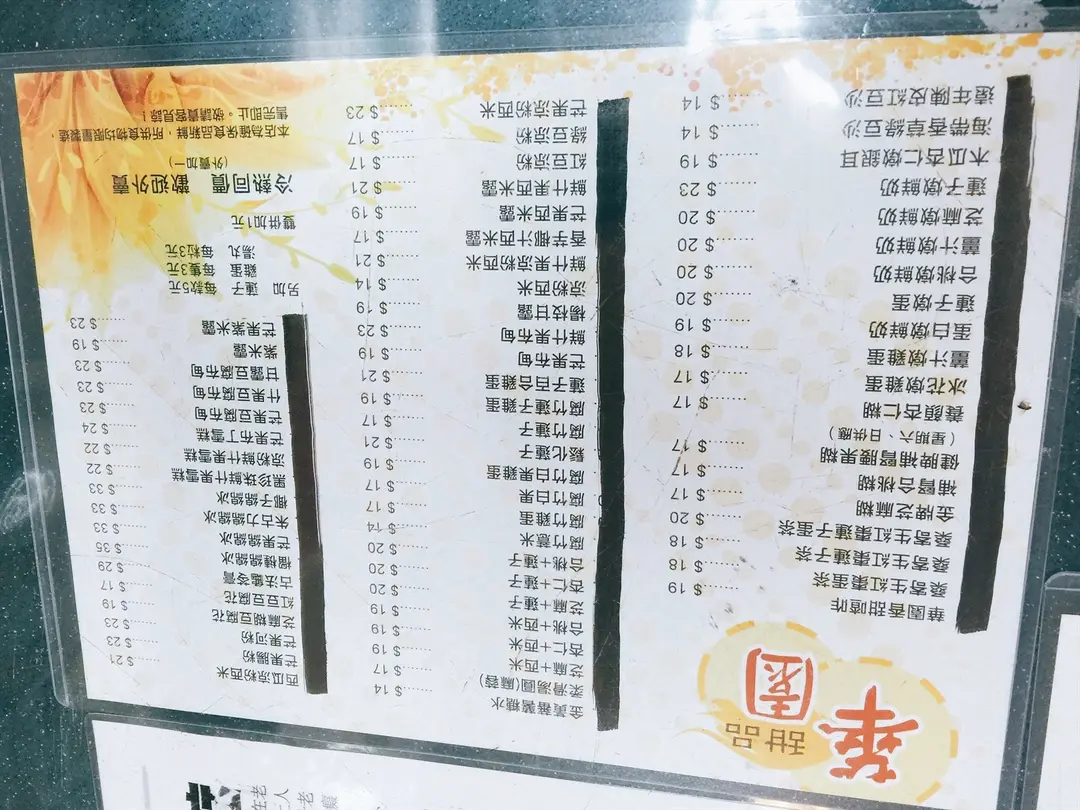 華園
甜品
華園香甜喳咋 ........$ 19
桑寄生紅棗蛋茶 ........$ 18
桑寄生紅棗蓮子茶 ........$ 18
桑寄生紅棗蓮子蛋茶 ........$ 20
金牌芝麻糊 ........$ 17
補腎合桃糊 ........$ 17
健脾補腎腰果糊 ........$ 17
(星期六、日供應)
養顏杏仁糊 ........$ 17
冰花燉雞蛋 ........$ 17
薑汁燉雞蛋 ........$ 18
蛋白燉鮮奶 ........$ 19
蓮子燉蛋 ........$ 20
合桃燉鮮奶 ........$ 20
薑汁燉鮮奶 ........$ 20
芝麻燉鮮奶 ........$ 20
蓮子燉鮮奶 ........$ 23
木瓜杏仁燉銀耳 ........$ 19
海帶香草綠豆沙 ........$ 14
遠年陳皮紅豆沙 ........$ 14
金黃蕃薯糖水 ........$ 14
柔滑湯圓(麻蓉) ........$ 17
芝麻+西米 ........$ 19
杏仁+西米 ........$ 19
合桃+西米 ........$ 19
芝麻+蓮子 ........$ 20
杏仁+蓮子 ........$ 20
合桃+蓮子 ........$ 20
腐竹薏米 ........$ 14
腐竹雞蛋 ........$ 17
腐竹白果 ........$ 19
腐竹白果雞蛋 ........$ 21
鬆化蓮子 ........$ 17
腐竹蓮子 ........$ 19
腐竹蓮子雞蛋 ........$ 21
蓮子百合雞蛋 ........$ 21
芒果布甸 ........$ 19
鮮什果布甸 ........$ 23
楊枝甘露 ........$ 19
涼粉西米 ........$ 14
鮮什果涼粉西米 ........$ 21
香芋椰汁西米露 ........$ 17
芒果西米露 ........$ 19
鮮什果西米露 ........$ 21
紅豆涼粉 ........$ 17
綠豆涼粉 ........$ 17
芒果涼粉西米 ........$ 23
西瓜涼粉西米 ........$ 21
芒果腸粉 ........$ 23
芒果河粉 ........$ 23
芝麻糊豆腐花 ........$ 19
紅豆豆腐花 ........$ 17
古法龜苓膏 ........$ 29
榴槤綿綿冰 ........$ 35
芒果綿綿冰 ........$ 33
朱古力綿綿冰 ........$ 33
椰子綿綿冰 ........$ 33
黑珍珠鮮什果雪糕 ........$ 22
涼粉鮮什果雪糕 ........$ 22
芒果布丁雪糕 ........$ 24
芒果豆腐布甸 ........$ 23
什果豆腐布甸 ........$ 23
甘露豆腐布甸 ........$ 23
紫米露 ........$ 19
芒果紫米露 ........$ 23
另加 蓮子 每款5元
雞蛋 每隻3元
湯丸 每粒3元
雙併加1元
冷熱同價 歡迎外賣
(外賣加一)
本店為確保食品新鮮，所供食物均限量製造，
售完即止。敬請貴客見諒！